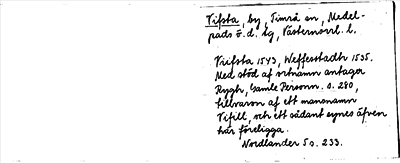 Vifsta, by, Timrå sn, Medel-
pads ö. d. tg, Västernorrl. l.
Vuifsta 1543, Weffestadh 1535.
Med stöd af ortnamn antager
Rygh, Gamle Personn. s. 280,
tillvaron af ett mansnamn
Vifill, och ett sådant synes äfven
här föreligga.
Nordlander So. 233.